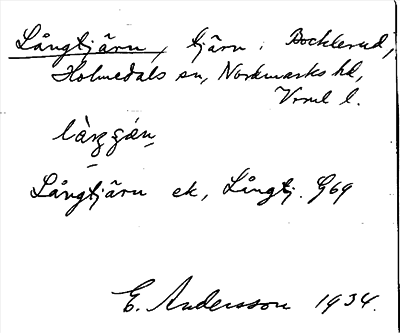 Långtjärn, tjärn i Bocklerud,
Holmedals sn, Nordmarks hd,
Vrml l.
Långtjärn ek, Långtj. G69
E. Andersson 1934.